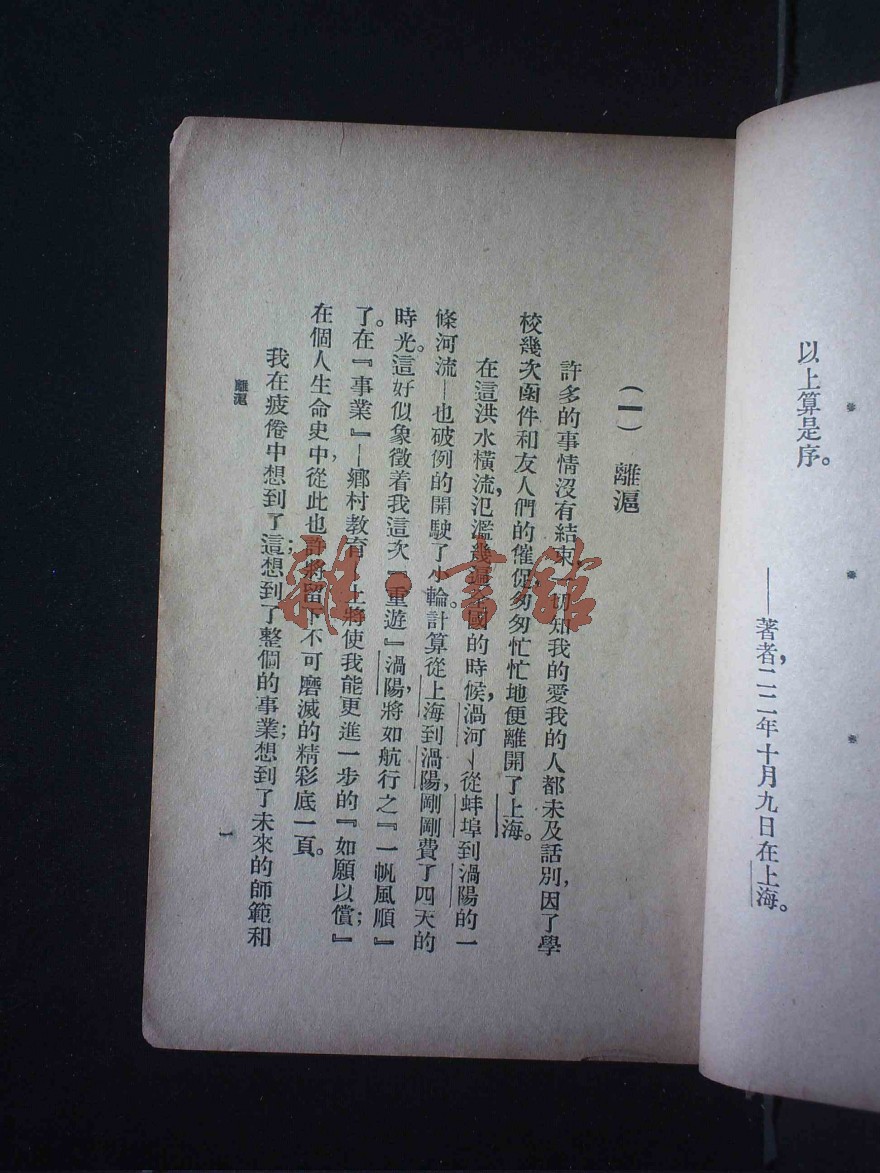 以上算是序。
——著者，二二年十月九日在上海。
（一）　離滬
許多的事情沒有結束，一切知我的愛我的人都未及話別，因了學
校幾次函件和友人們的催促，匆匆忙忙地便離開了上海。
在這洪水橫流，氾濫幾遍全國的時候，渦河—從蚌埠到渦陽的一
條河流—也破例的開駛了小輪。計算從上海到渦陽，剛剛費了四天的
時光。這好似象徵着我這次『重遊』渦陽，將如航行之『一帆風順』
了。在『事業』—鄉村教育—上將使我能更進一步的『如願以償』；
在個人生命史中，從此也許將留下不可磨滅的精彩底一頁。
我在疲倦中想到了；這想到了整個的事業；想到了未來的師範和
離滬
一
雜·書館